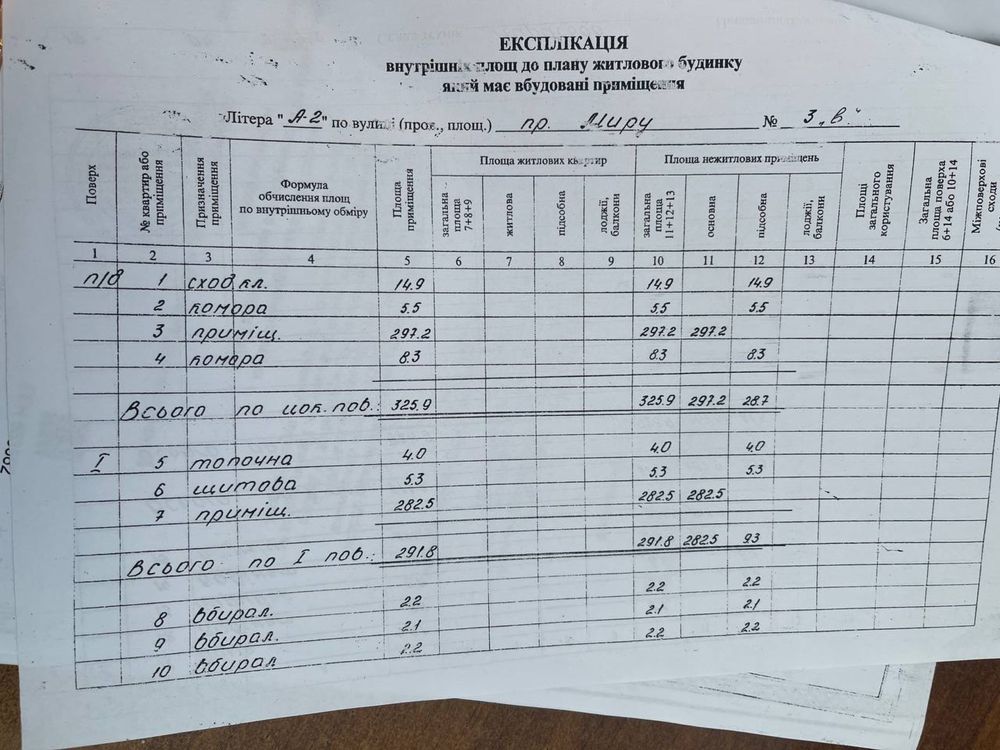 ЕКСПЛІКАЦІЯ
внутрішніх площ до плану житлового будинку
який має вбудовані приміщення
Літера "А-2" по вулиці (прос., площ.) пр. Миру № 3 „в"
Поверх
№ квартир або приміщення
Призначення приміщення
Формула обчислення площ по внутрішньому обміру
Площа приміщення
Площа житлових квартир
загальна площа 7+8+9
житлова
підсобна
лоджії, балкони
Площа нежитлових приміщень
загальна площа 11+12+13
основна
підсобна
лоджії, балкони
Площі загального користування
Загальна площа поверха 6+14 або 10+14
Міжповерхові сходи
1 2 3 4 5 6 7 8 9 10 11 12 13 14 15 16
п/в 1 сход кл. 14.9 14.9 14.9
2 комора 5.5 5.5 5.5
3 приміщ. 297.2 297.2 297.2
4 комора 8.3 8.3 8.3
Всього по цок. пов.: 325.9 325.9 297.2 28.7
I 5 топочна 4.0 4.0 4.0
6 щитова 5.3 5.3 5.3
7 приміщ. 282.5 282.5 282.5
Всього по I пов.: 291.8 291.8 282.5 9.3
8 вбирал. 2.2 2.2 2.2
9 вбирал. 2.1 2.1 2.1
10 вбирал 2.2 2.2 2.2